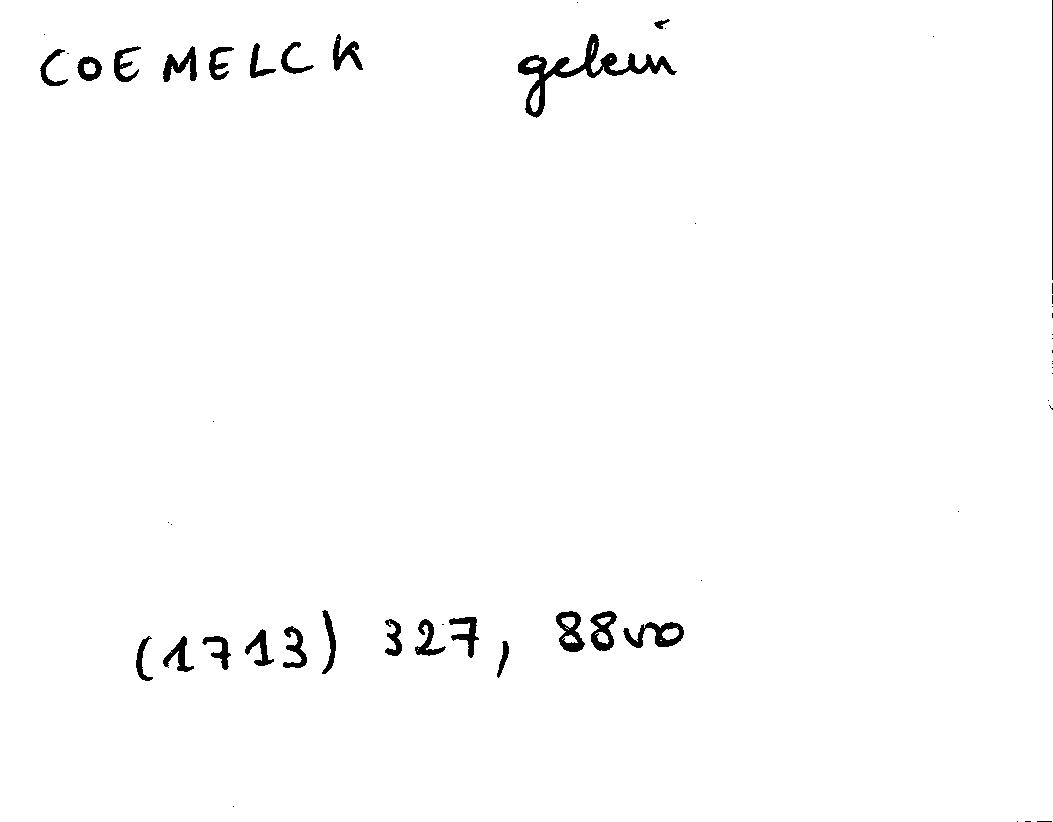 COEMELCK gelein
(1713) 327, 88vo